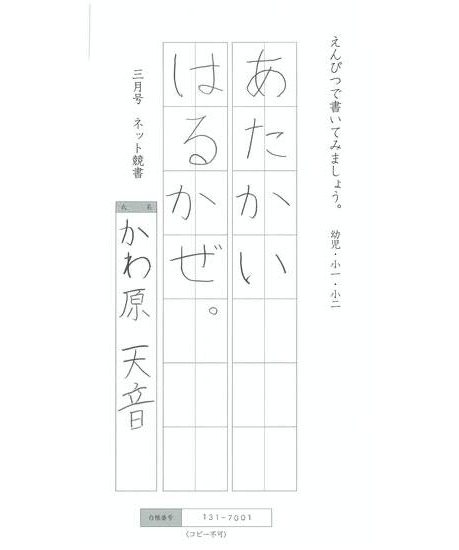 えんぴつで書いてみましょう。 幼児・小一・小二
あたかい
はるかぜ。
三月号 ネット競書
氏 名
かわ原 天音
会稚番号 131-7001
(コピー不可)